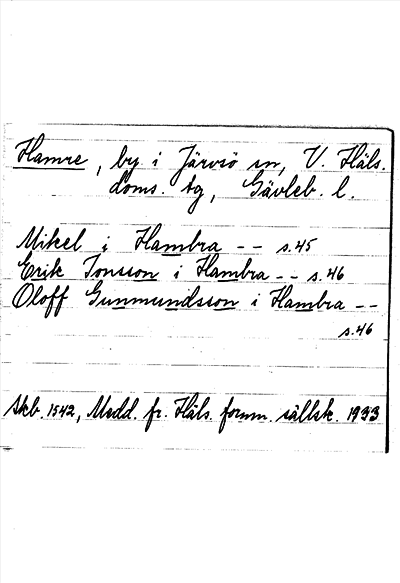 Hamre, by i Järvsö sn, V. Häls.
doms. tg, Gävleb. l.
Mikel i Hambra -- s.45
Erik Jonsson i Hambra -- s.46
Oloff Gunmundsson i Hambra --
s.46
Skb. 1542, Medd. fr. Häls. fornm. sällsk. 1933